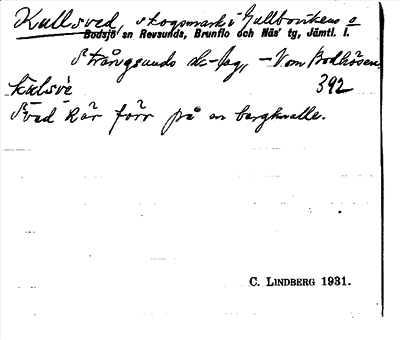 Kullsved, skogsmark i Gullbovikens o
Bodsjö sn Revsunds, Brunflo och Näs' tg, Jämtl. l.
Strångsunds sk-lag, – V om Bodsjösen
392
Sved här förr på en bergknalle.
C. LINDBERG 1931.